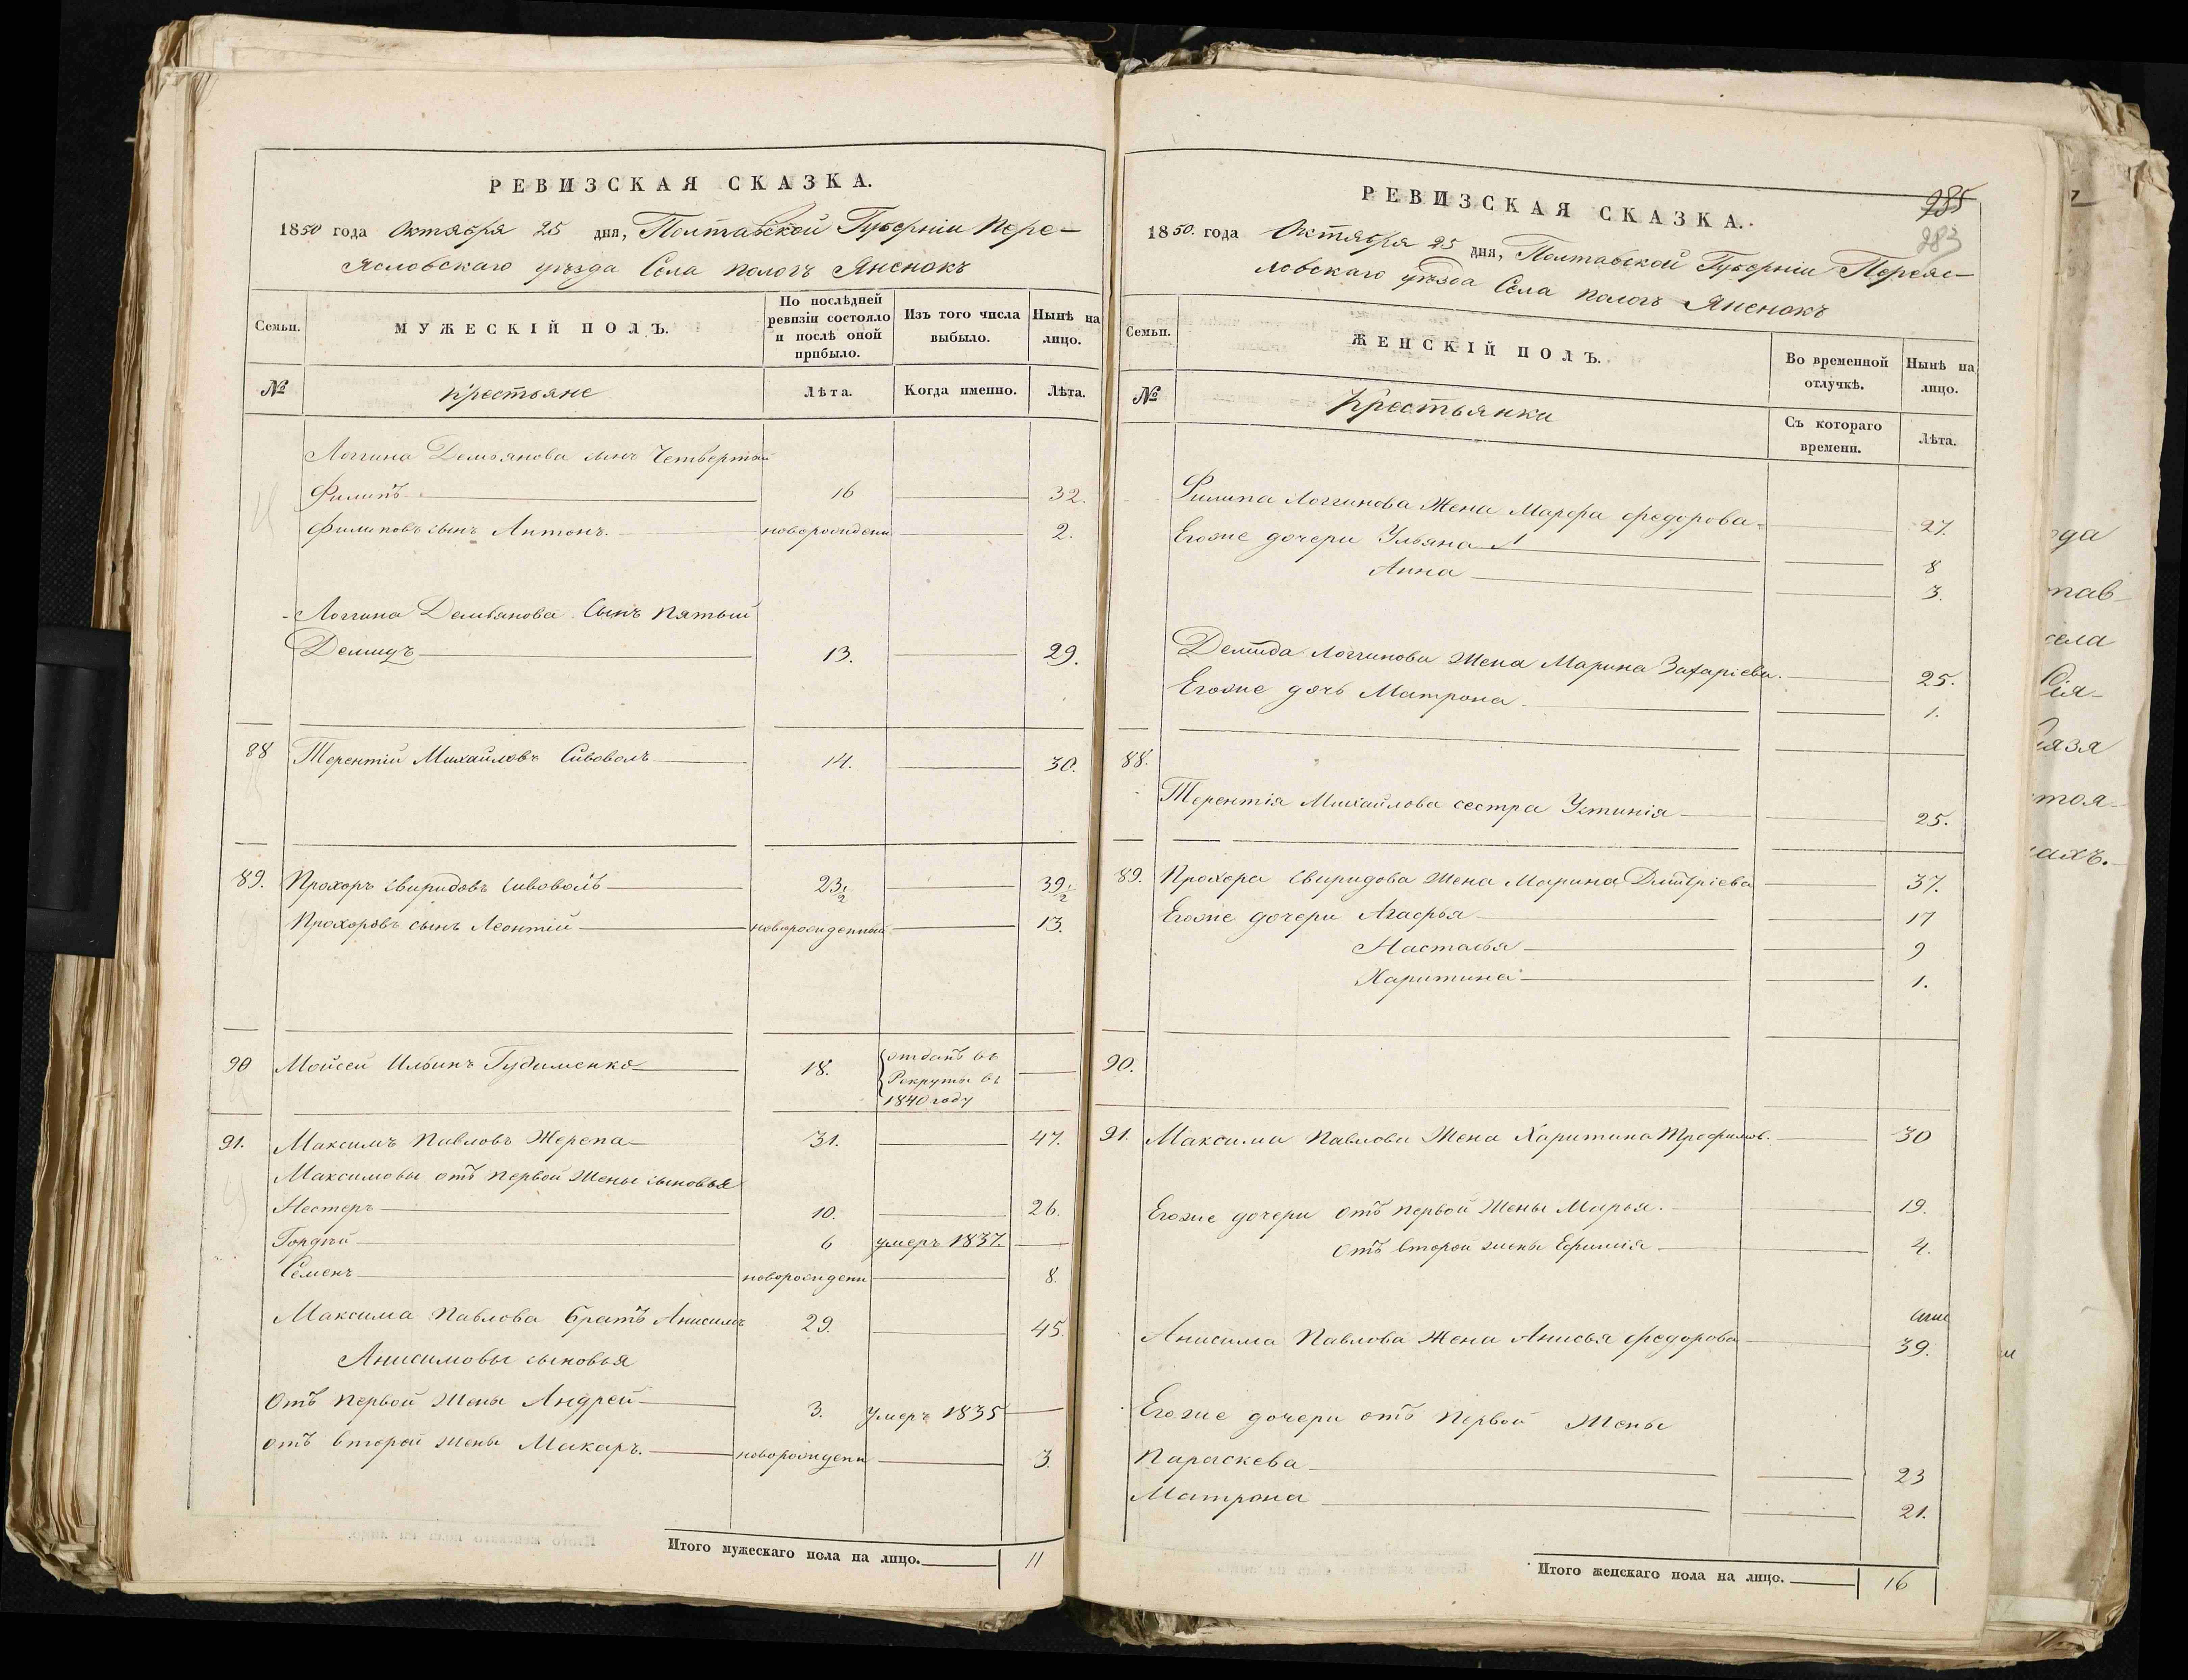 РЕВИЗСКАЯ СКАЗКА.
1850 года Октября 25 дня, Полтавской Губерніи Пере-
ясловскаго уѣзда Села Пологъ Яненокъ
Семьи. МУЖЕСКІЙ ПОЛЪ. По послѣдней ревизіи состояло и послѣ оной прибыло. Изъ того числа выбыло. Нынѣ на лицо.
№ Крестьяне Лѣта. Когда именно. Лѣта.
Логгина Демьянова сынъ Четвертый
Филипъ 16 32.
Филиповъ сынъ Антонъ. новорожден 2.
Логгина Демьянова Сынъ Пятый
Демидъ 13. 29.
88 Терентій Михайловъ Сивоволъ 14. 30.
89. Прохоръ Свиридовъ Сивоволъ 23 1/2 39 1/2
Прохоровъ сынъ Леонтій новорожденный 13.
90 Мойсей Ильинъ Гудименко 18. отданъ въ
Рекруты въ
1840 году
91. Максимъ Павловъ Жерепа 31. 47.
Максимовы отъ первой жены сыновья
Нестеръ 10. 26.
Гордѣй 6 умеръ 1837.
Семенъ новорожден 8.
Максима Павлова братъ Анисимъ 29. 45.
Анисимовы сыновья
Отъ первой жены Андрей 3. Умеръ 1835
отъ второй жены Макаръ. новорожден 3.
Итого мужескаго пола на лицо. 11
285
283
РЕВИЗСКАЯ СКАЗКА.
1850. года Октября 25 дня, Полтавской Губерніи Переяс-
ловскаго уѣзда Села Пологъ Яненокъ
Семьи. ЖЕНСКІЙ ПОЛЪ. Во временной отлучкѣ. Нынѣ на лицо.
№ Крестьянки Съ котораго времени. Лѣта.
Филипа Логгинова Жена Марфа Федорова 27.
Егоже дочери Ульяна 8
Анна 3.
Демида Логгинова Жена Марина Захаріева. 25.
Егоже дочь Матрона 1.
88.
Терентія Михайлова сестра Устинія 25.
89. Прохора Свиридова жена Марина Дмитріева 37.
Егоже дочери Агафья 17
Настасья 9
Харитина 1.
90.
91. Максима Павлова Жена Харитина Трофимов. 30
Егоже дочери отъ первой жены Марья. 19.
отъ второй жены Ефимія 4.
Анисима Павлова Жена Анисья Федорова 39.
Егоже дочери отъ первой жены
Параскева 23
Матрона 21.
Итого женскаго пола на лицо. 16